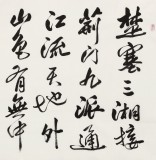 楚塞三湘接
荊門九派通
江流天地外
山色有無中